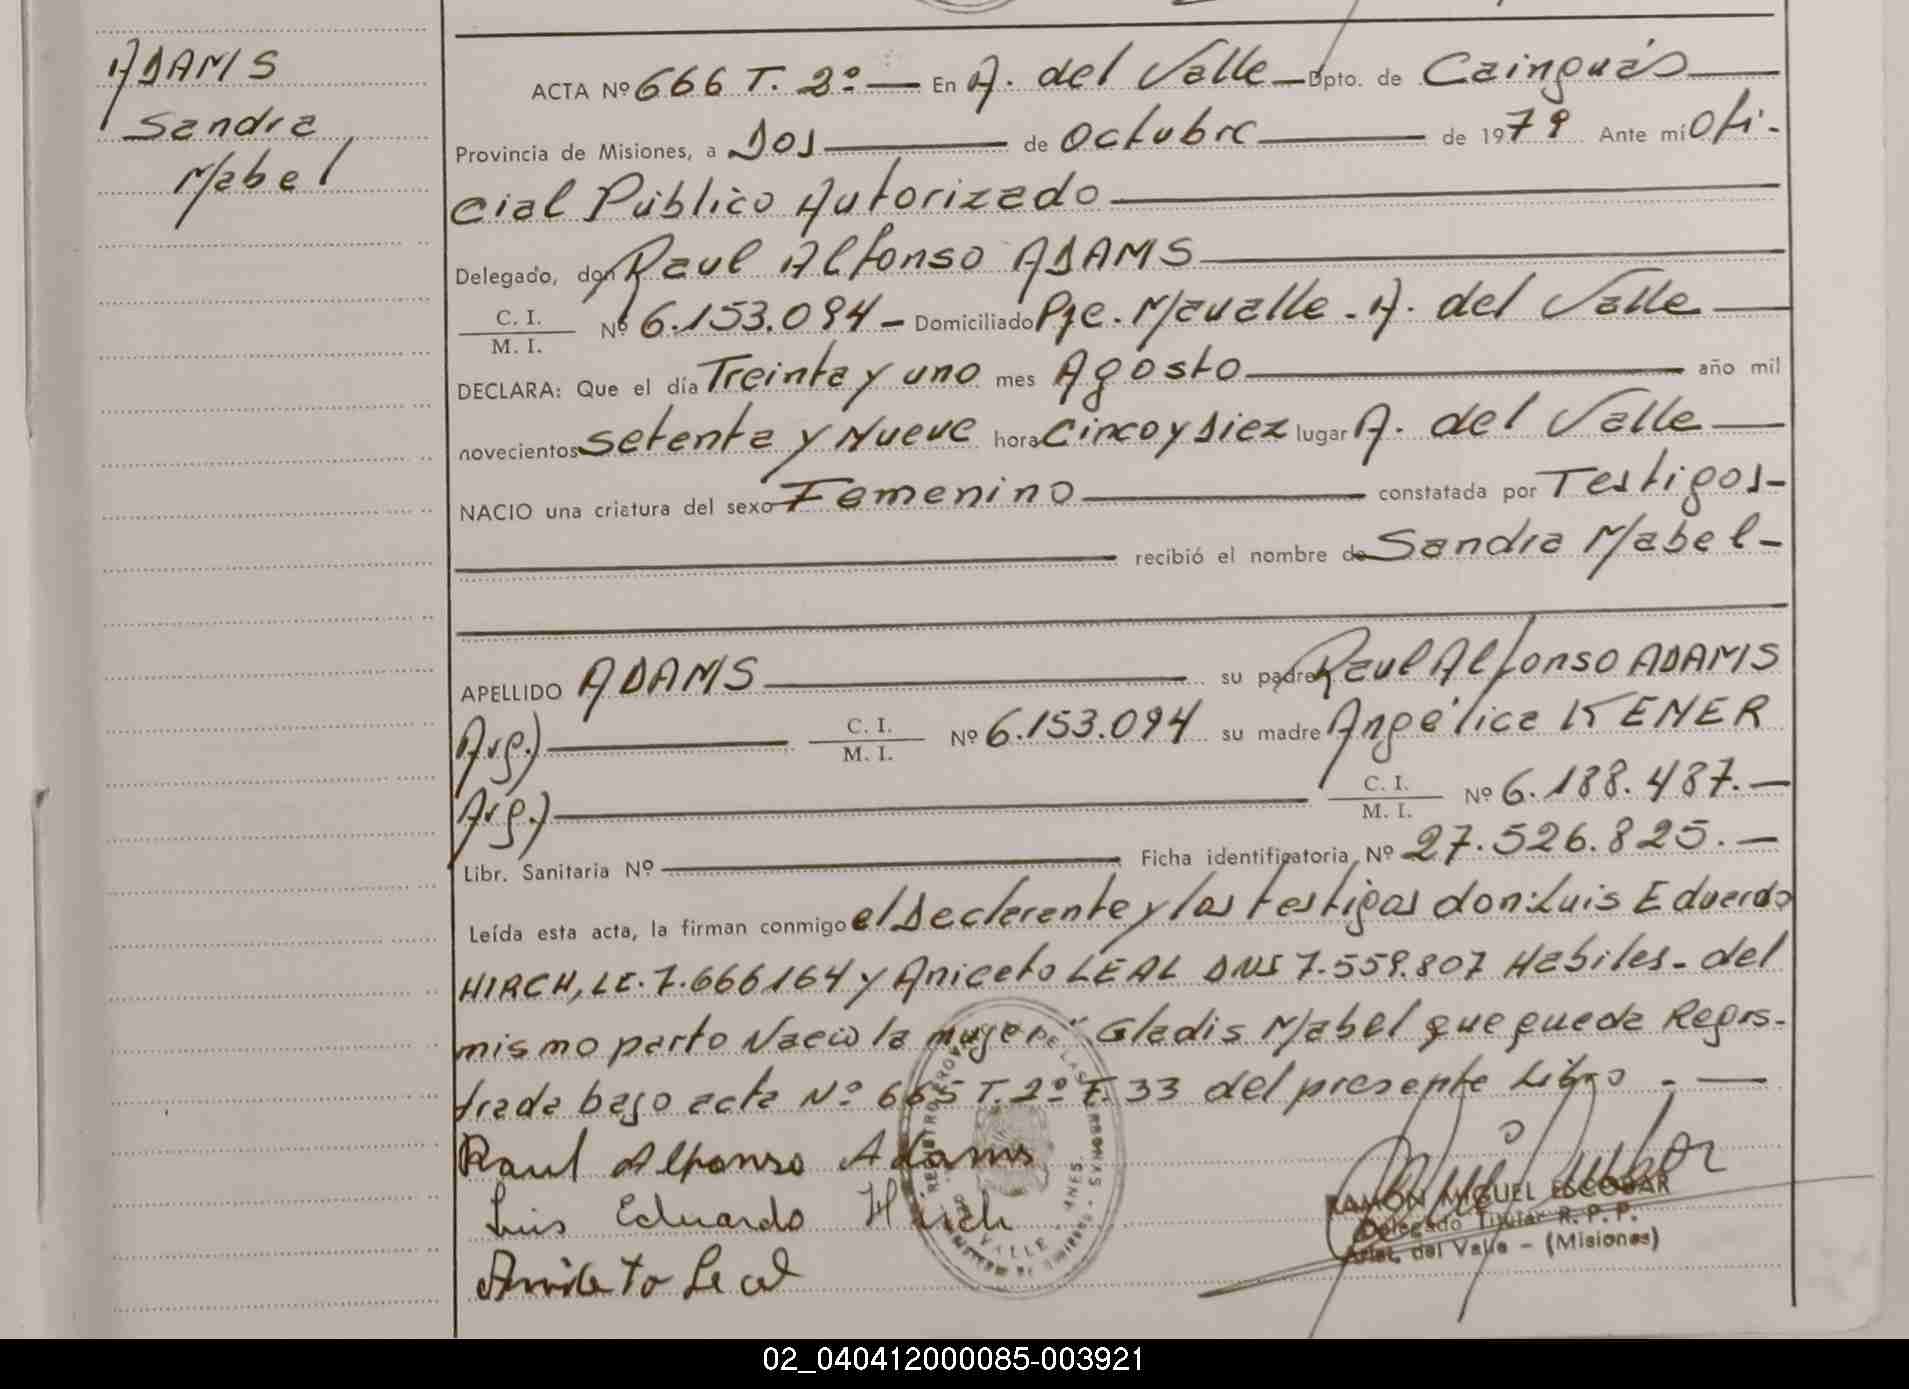 ADAMS
Sandra
Mabel
ACTA Nº 666 T. 2º — En A. del Valle — Dpto. de Cainguás
Provincia de Misiones, a Dos de Octubre de 1979 Ante mí Ofi-
cial Público Autorizado
Delegado, don Raul Alfonso ADAMS
C. I.
M. I.
Nº 6.153.094 — Domiciliado Pje. Mavalle - A. del Valle
DECLARA: Que el día Treinta y uno mes Agosto año mil
novecientos setenta y Nueve hora Cinco y Diez lugar A. del Valle
NACIO una criatura del sexo Femenino constatada por Testigos-
recibió el nombre de Sandra Mabel -
APELLIDO ADAMS su padre Raul Alfonso ADAMS
Arg.) C. I.
M. I.
Nº 6.153.094 su madre Angélica KENER
Arg.) C. I.
M. I.
Nº 6.188.487. —
Libr. Sanitaria Nº Ficha identificatoria Nº 27.526.825. —
Leída esta acta, la firman conmigo el Declarante y los testigos don: Luis Eduardo
HIRCH, LE. 7.666164 y Aniceto LEAL DNI 7.559.807 Habiles - del
mismo parto Nacio la mujer " Gladis Mabel que queda Regis-
trada bajo acta Nº 665 T. 2º F. 33 del presente Libro . —
Raul Alfonso Adams
Luis Eduardo Hirch
Aniceto Leal
RAMON MIGUEL ESCOBAR
Delegado Titular R. P. P.
Arist. del Valle - (Misiones)
02_040412000085-003921